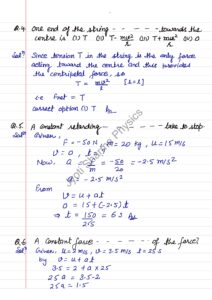 Q.4 One end of the string - - - - - towards the
centre is (i) T (ii) T - mv²/l (iii) T + mv²/l (iv) 0
Solⁿ Since tension T in the string is the only force
acting toward the centre and thus provides
the centripetal force, so
T = mv²/l [r = l]
i.e. Fnet = T
correct option (i) T
Q.5. A constant retarding - - - - - - take to stop
Solⁿ Given,
F = -50 N, m = 20 kg, u = 15 m/s
v = 0, t = ?
Now, a = F/m = -50/20 = -2.5 m/s²
a = -2.5 m/s²
From
v = u + at
0 = 15 + (-2.5) t
⇒ t = 150/25 = 6 s
Q.6 A constant force - - - - - - of the force?
Solⁿ Given: u = 2 m/s, v = 3.5 m/s t = 25 s
by v = u + at
3.5 = 2 + a × 25
25a = 3.5 - 2
25a = 1.5
Physics